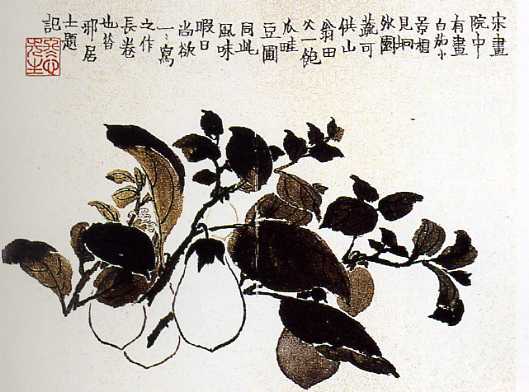 宋畫
院中
有畫
白茄小
景相
見
園
蔬可
供山
翁田
父一飽
瓜畦
豆圃
同此
風味
暇日
尚欲
一一寫
之作
長卷
也昔
邪居
士題
記
冬心先生